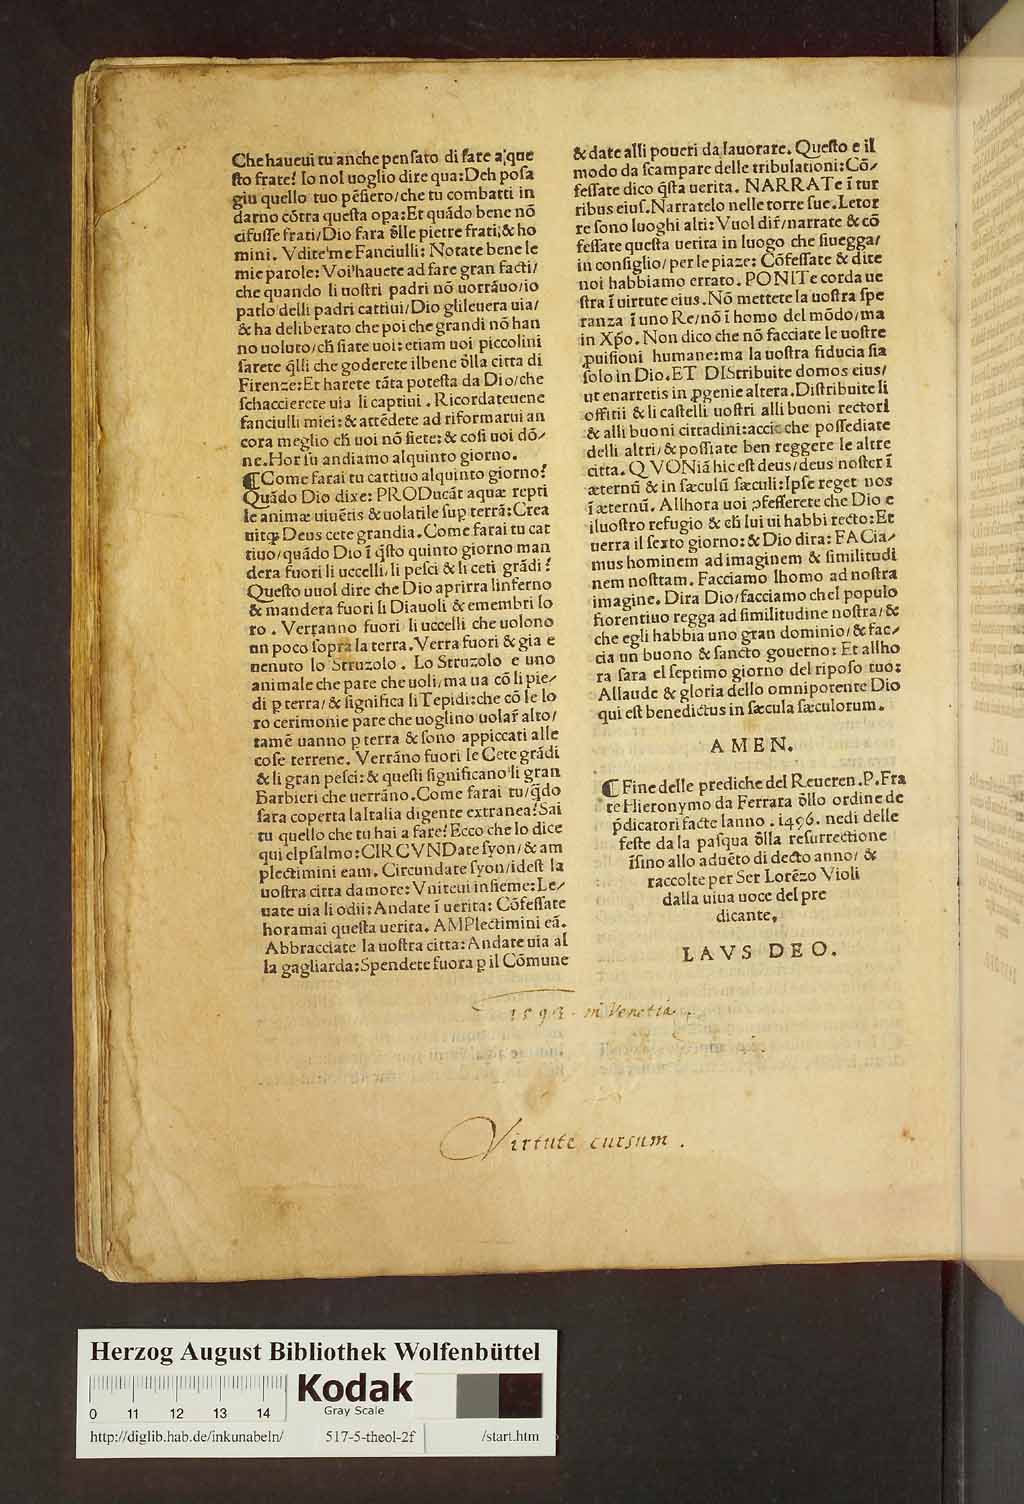 Che haueui tu anche penſato di fare a que
ſto frate? Io nol uoglio dire qua: Deh poſa
giu quello tuo pẽſiero/che tu combatti in
darno cõtra queſta opa: Et quãdo bene nõ
cifuſſe frati/Dio fara ðlle pietre frati, & ho
mini. Vdite me Fanciulli: Notate bene le
mie parole: Voi hauete ad fare gran facti/
che quando li uoſtri padri nõ uorrãuo/io
parlo delli padri cattiui/Dio glileuera uia/
& ha deliberato che poi che grandi nõ han
no uoluto/ch̃ ſiate uoi: etiam uoi piccolini
ſarete q̃lli che goderete ilbene ðlla citta di
Firenze: Et harete tãta poteſta da Dio/che
ſchaccierete uia li captiui. Ricordateuene
fanciulli miei: & attẽdete ad riformarui an
cora meglio ch̃ uoi nõ ſiete: & coſi uoi dõ⸗
ne. Hor ſu andiamo alquinto giorno.
¶ Come farai tu cattiuo alquinto giorno?
Quãdo Dio dixe: PRODucãt aquæ repti
le animæ uiuẽtis & uolatile ſup terrã: Crea
uitqȝ Deus cete grandia. Come farai tu cat
tiuo/quãdo Dio ĩ q̃ſto quinto giorno man
dera fuori li uccelli, li peſci & li ceti grãdi?
Queſto uuol dire che Dio aprirra linferno
& mandera fuori li Diauoli & emembri lo
ro. Verranno fuori li uccelli che uolono
un poco ſopra la terra. Verra fuori & gia e
uenuto lo Struzolo. Lo Struzolo e uno
animale che pare che uoli/ma ua cõ li pie⸗
di p terra/& ſignifica li Tepidi: che cõ le lo
ro cerimonie pare che uoglino uolar̃ alto/
tamẽ uanno p terra & ſono appiccati alle
coſe terrene. Verrãno fuori le Cete grãdi
& li gran peſci: & queſti ſignificano li gran
Barbieri che uerrãno. Come farai tu/q̃do
ſara coperta la Italia digente extranea? Sai
tu quello che tu hai a fare? Ecco che lo dice
qui elpſalmo: CIRCVNDate ſyon/& am
plectimini eam. Circundate ſyon/ideſt la
uoſtra citta damore: Vniteui inſieme: Le⸗
uate uia li odii: Andate ĩ uerita: Cõfeſſate
horamai queſta uerita. AMPlectimini eã.
Abbracciate la uoſtra citta: Andate uia al
la gagliarda: Spendete fuora p il Cõmune
& date alli poueri da lauorare. Queſto e il
modo da ſcampare delle tribulationi: Cõ⸗
feſſate dico q̃ſta uerita. NARRATe ĩ tur
ribus eius. Narratelo nelle torre ſue. Letor
re ſono luoghi alti: Vuol dir̃/narrate & cõ
feſſate queſta uerita in luogo che ſiuegga/
in conſiglio/per le piaze: Cõfeſſate & dite
noi habbiamo errato. PONITe corda ue
ſtra ĩ uirtute eius. Nõ mettete la uoſtra ſpe
ranza ĩ uno Re/nõ ĩ homo del mõdo/ma
in Xp̃o. Non dico che nõ facciate le uoſtre
ꝓuiſioni humane: ma la uoſtra fiducia ſia
ſolo in Dio. ET DIStribuite domos eius/
ut enarretis in ꝓgenie altera. Diſtribuite li
offitii & li caſtelli uoſtri alli buoni rectori
& alli buoni cittadini: accio che poſſediate
delli altri/& poſſiate ben reggere le altre
citta. QVONiã hic eſt deus/deus noſter ĩ
æternũ & in ſæculũ ſæculi: Ipſe reget nos
ĩ æternũ. Allhora uoi ꝓfeſſerete che Dio e
iluoſtro refugio & ch̃ lui ui habbi recto: Et
uerra il ſexto giorno: & Dio dira: FACia⸗
mus hominem ad imaginem & ſimilitudi
nem noſttam. Facciamo lhomo ad noſtra
imagine. Dira Dio/facciamo chel populo
fiorentiuo regga ad ſimilitudine noſtra/&
che egli habbia uno gran dominio/& fac⸗
cia un buono & ſancto gouerno: Et allho
ra ſara el ſeptimo giorno del ripoſo tuo:
Allaude & gloria dello omnipotente Dio
qui eſt benedictus in ſæcula ſæculorum.
AMEN.
¶ Fine delle prediche del Reueren. P. Fra
te Hieronymo da Ferrara ðllo ordine de
p̃dicatori facte lanno. 1496. nedi delle
feſte da la paſqua ðlla reſurrectione
ĩſino allo aduẽto di decto anno/ &
raccolte per Ser Lorẽzo Violi
dalla uiua uoce del pre
dicante,
LAVS DEO.
in Venetia.
Virtute cursum.
Herzog August Bibliothek Wolfenbüttel
Kodak
Gray Scale
0 11 12 13 14
http://diglib.hab.de/inkunabeln/ 517-5-theol-2f /start.htm